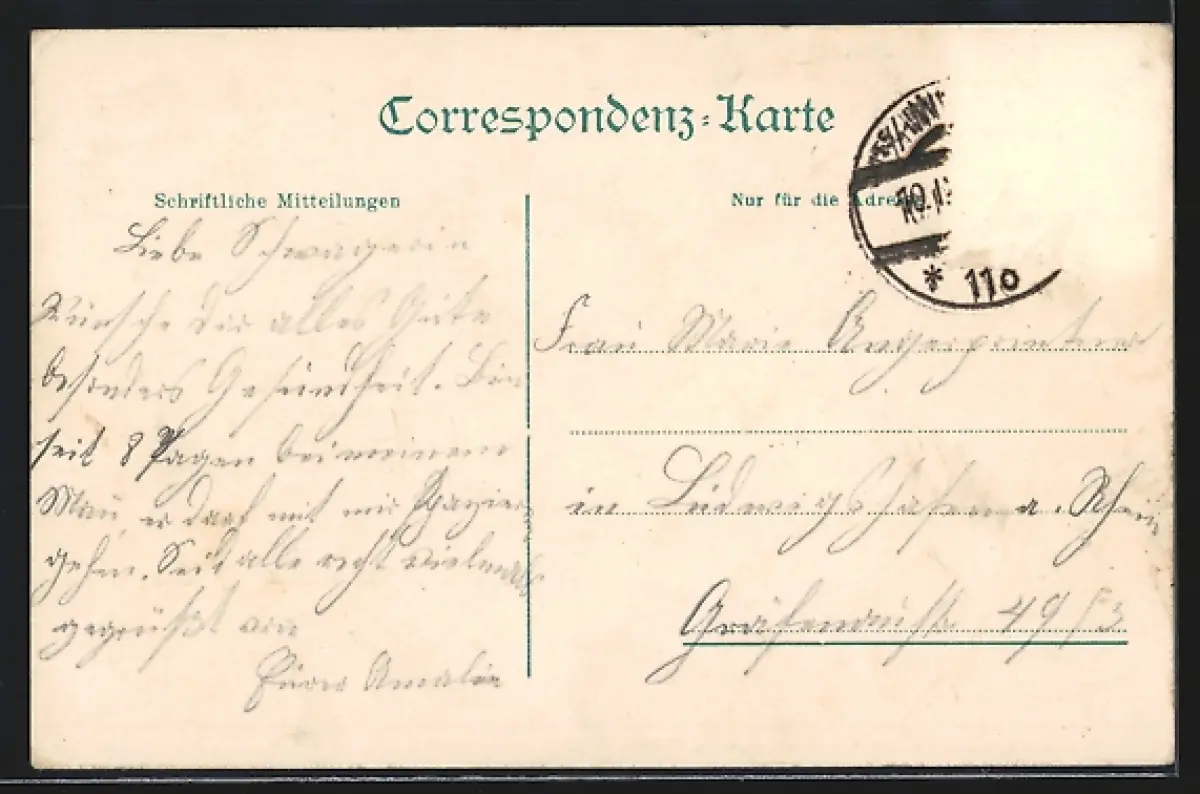 Correspondenz-Karte
Schriftliche Mitteilungen
Nur für die Adresse
10.1
* 110
Liebe Schwägerin
Wünsche dir alles Gute
besonders Gesundheit. Bin
seit 8 Tagen bei meinem
Mann, er darf mit mir spazieren
gehen. Seid alle recht vielmals
gegrüßt von
Eurer Amalie
Frau Marie
in Ludwigshafen a. Rhein
49